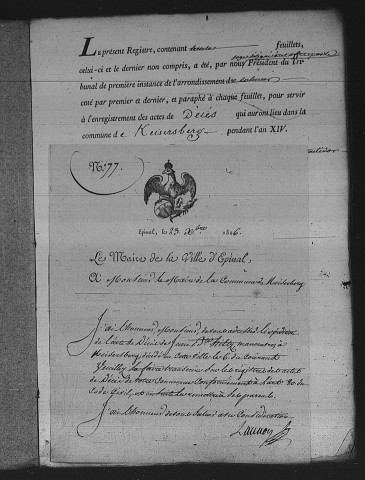 Le présent Registre, contenant feuillets,
celui-ci et le dernier non compris, a été, par nous Président du Tri-
bunal de première instance de l'arrondissement de
coté par premier et dernier, et paraphé à chaque feuillet, pour servir
à l'enregistrement des actes de Décés qui auront lieu dans la
commune de Keisersberg pendant l'an XIV.
N.° 77.
Epinal, le 23 Xbre 1806.
Le Maire de la Ville d'Epinal,
A Monsieur le Maire de la Commune de Keisersberg
J'ai l'honneur, Monsieur, de vous adresser l'expédition
de l'acte de Décès de Jean manœuvre à
Keisersberg, décédé en cette ville le 6 du courant
Veuillez la faire transcrire sur le registre des actes
de Décès de votre Commune Conformément à l'art. 80 du
Code Civil,
J'ai l'honneur de vous saluer avec Considération